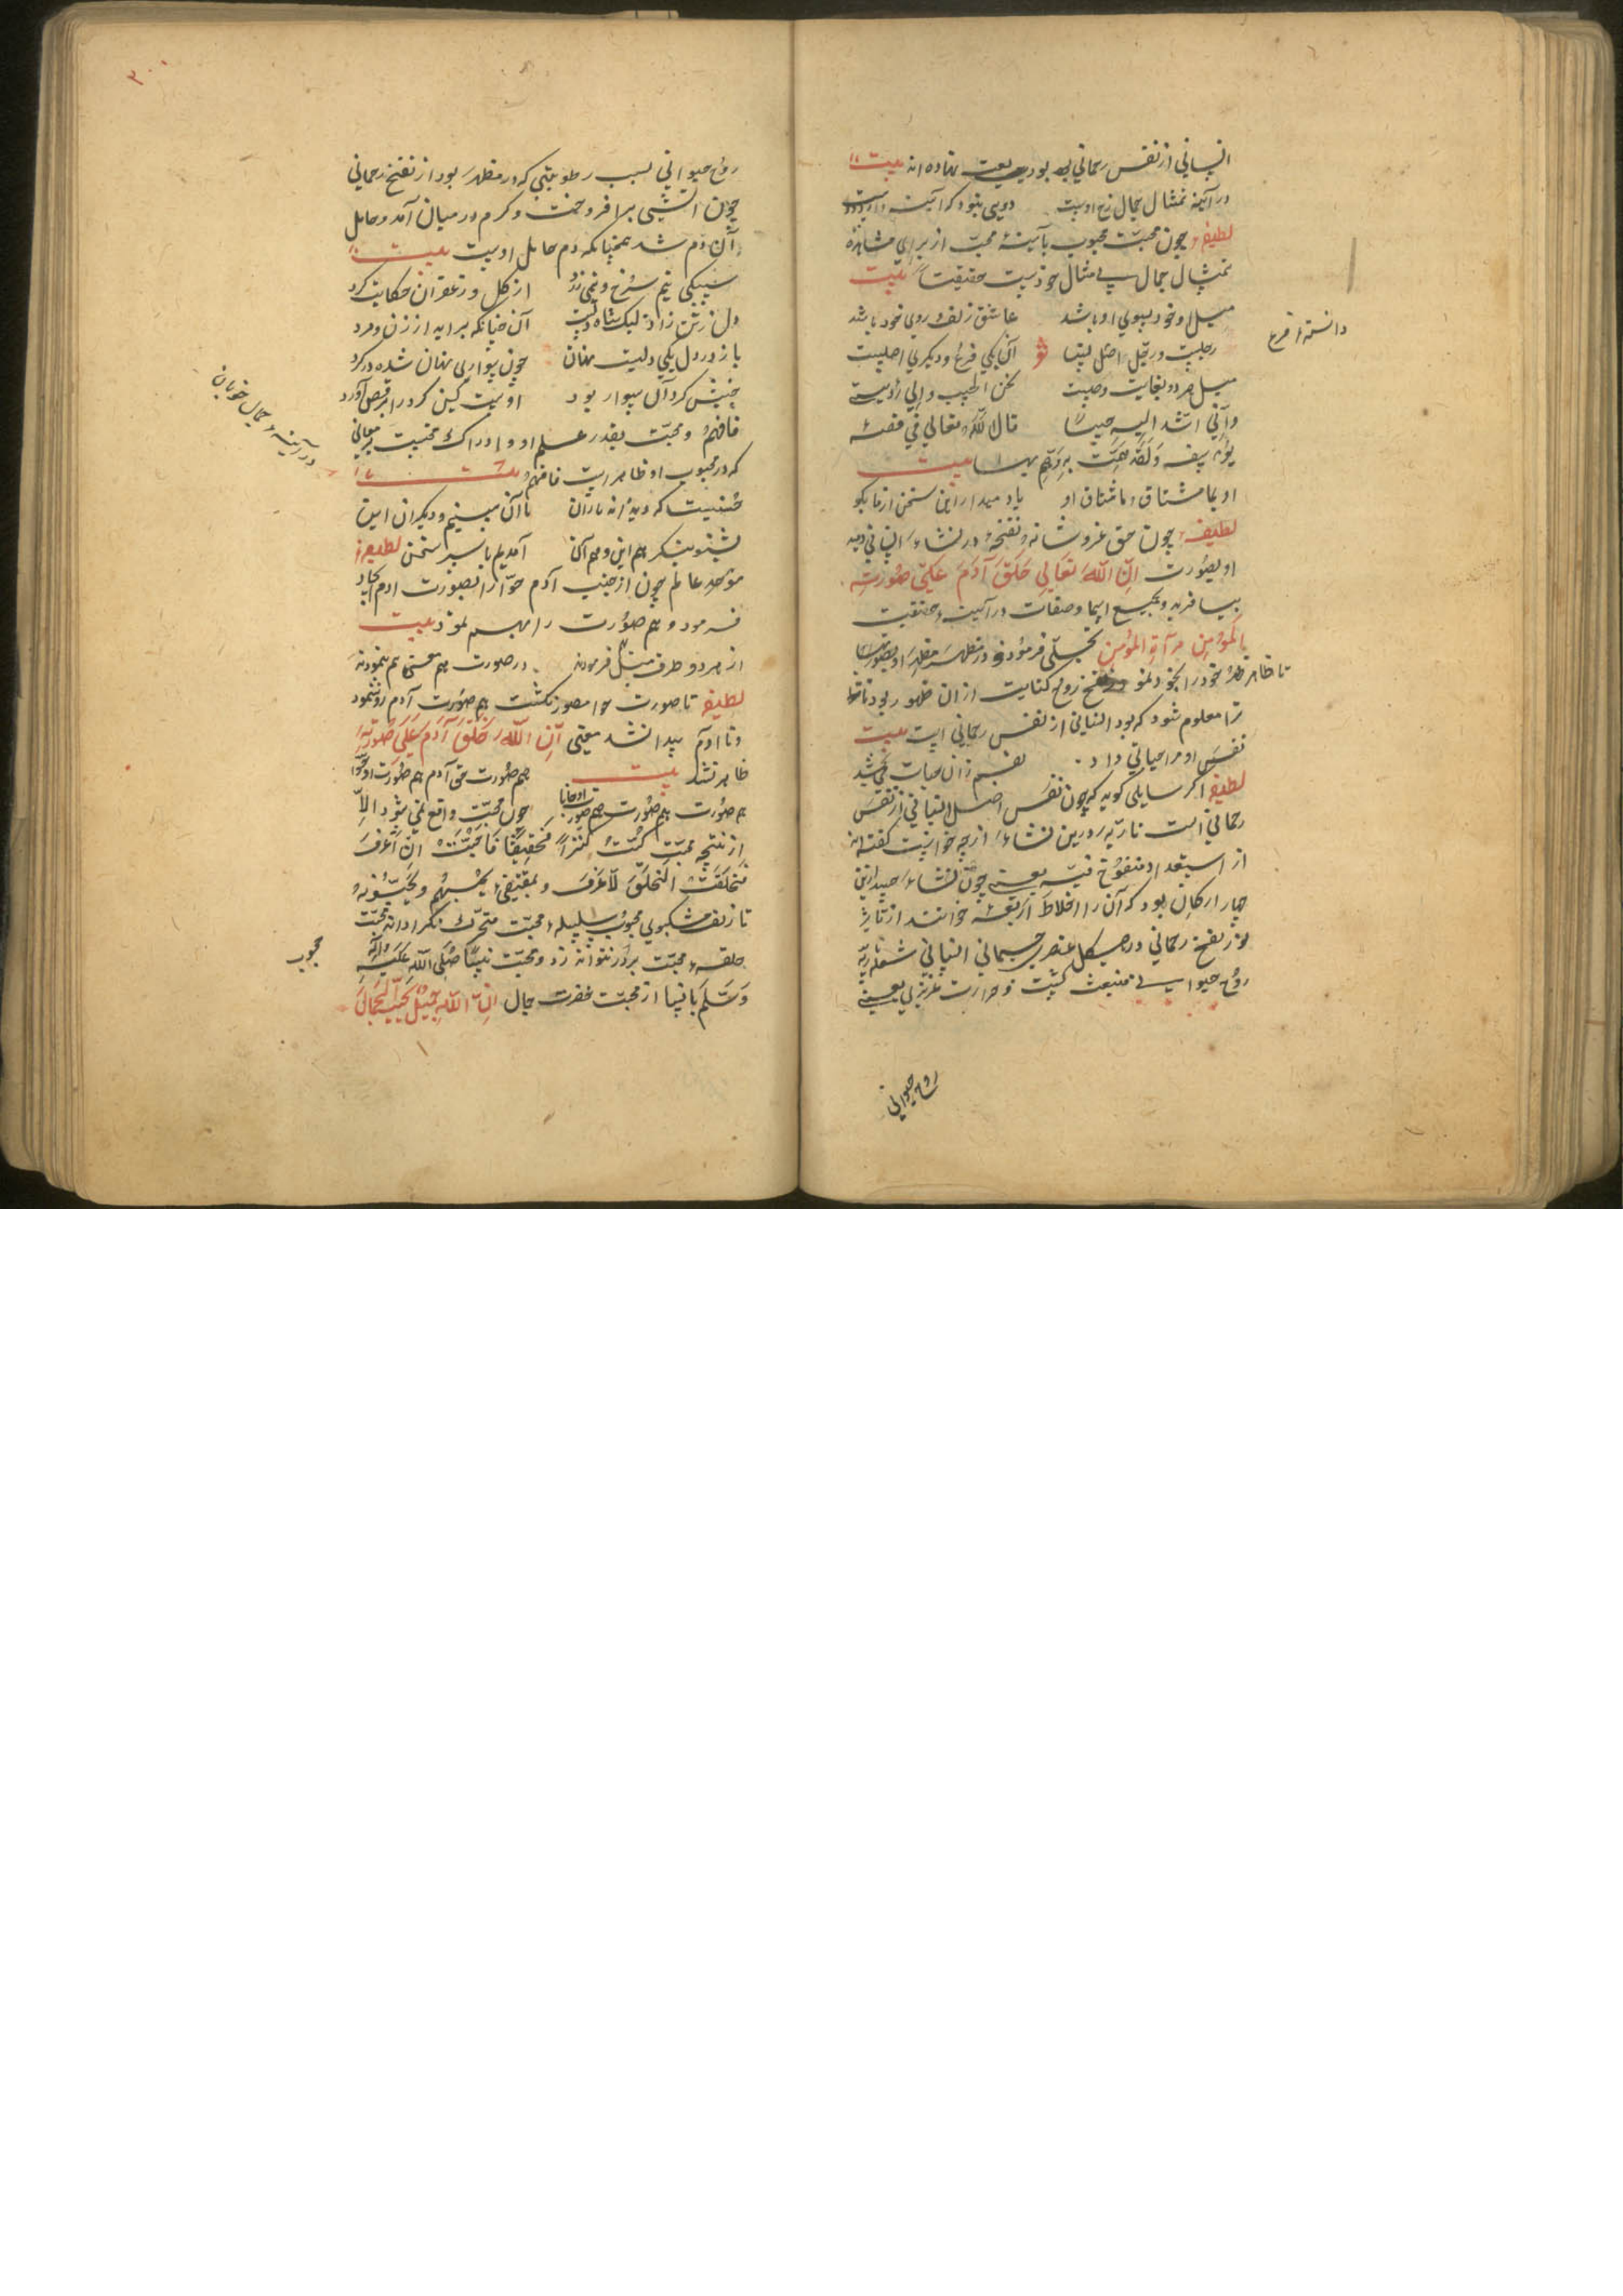 انسانی از نفس رحمانی بود بیعت نهاده اند بیت
در آینه تمثال جمال رخ اوست دویی بنمود کر آینه
لطیفه چون محبّت محبوب بآینهٔ محبّ از برای مشاهدهٔ
تمثال جمال بی مثال خودست حقیقتاً بیت
میل او خود بسوی او باشد عاشق زلف و روی خود باشد
آن یکی فرع و دیگری اصلیست
میل هر دو بغایت وصلیست
وانّی اشدّ الیه حنینا قال اللّه تعالی فی قصّهٔ
یوسف وَلَقَد هَمَّت بِه وَهَمَّ بها بیت
او بما مشتاق و ما مشتاق او یاد میدار این سخن از ما بکو
لطیفه چون حق عزّ و شانه و نفخهٔ در نشاءِ انسانی دمید
او بصورت انّ اللّه تعالی خلق آدم علی صورته
بیافرید و بجمیع اسما و صفات در آینهٔ حقیقت
المؤمن مرآة المؤمن تجلّی فرمود و در مظهر
تا ظاهر خود را بخود نمود نفخ روح کنایت از ان ظهور بود تا
ترا معلوم شود که بود انسانی از نفس رحمانی است بیت
نفس او مرا حیاتی داد نفسم زان حیات می بخشد
لطیفه اکر سایلی کوید که چون نفس اصل انسانی از نفس
رحمانی است ناریّه درین نشاء از چه خواست کفته اند
از استعداد منفوخ فیه یعنی چون نشاءِ جسد ازین
چهار ارکان بود که آن را اخلاط اربعه خوانند از تأثیر
نور نفخ رحمانی در هیکل عنصر جسمانی انسانی شعله
روح حیوانی منبعث کشت و حرارت غریزی یعنی
روح حیوانی
دانستهٔ فرع
۳۰۰
روح حیوانی بسبب رطوبتی که در مظهر بود از نفخ رحمانی
چون آتشی برافروخت و کرم در میان آمد و حامل
آن دم شد همچنانکه دم حامل اوست بیت
سیبکی نیم سرخ و نیمی زرد از کل و زعفران حکایت کرد
دل ز تن زاد لیک شاه تنست آن چنانکه براید از زن و مرد
باز در دل یکی دلیست نهان چون سواری نهان شده در کرد
جنبش کرد آن سوار بود اوست کین کرد را برقص آورد
فافهم و محبّت بقدر علم او و ادراک محبست بر معانی
که در محبوب او ظاهر است فافهم بیت
حسنیست که دیده اند یاران ما آن بینیم و دیکران این
بشنو بنکر هم این و هم آن آمدیم با سر سخن لطیفه
موجد عالم چون از جنب آدم حوّا را بصورت ادم ایجاد
فرمود و هم صورت را بهم نمود بیت
از هر دو طرف فرموده در صورت هم معنی هم بنموده
لطیفه تا صورت حوا مصور نکشت هم صورت آدم رو ننمود
و تا ادم پیدا نشد معنی انّ اللّه خلق آدم علی صورته
ظاهر نشد بیت هم صورت حق آدم هم صورت او حوّا
هم صورت هم صورت هم صورت او جانا چون محبّت واقع نمی شود الّا
از نتیجهٔ محبّت کنت کنزاً مخفیا فاحببت ان اعرف
فخلقت الخلق لاعرف و بمقتضی یحبهم ویحبونه
تا زلف مشکبوی محبوب سلسلهٔ محبّت متحرک نکرداند محبّت
حلقهٔ محبّت بر در نتواند زد و محبّت نبیّنا صلی اللّه علیه وآله
وسلّم بانبیا از محبّت حضرت جمال انّ اللّه جمیل یحبّ الجمال
در آینهٔ جمال خوبان
محبوب